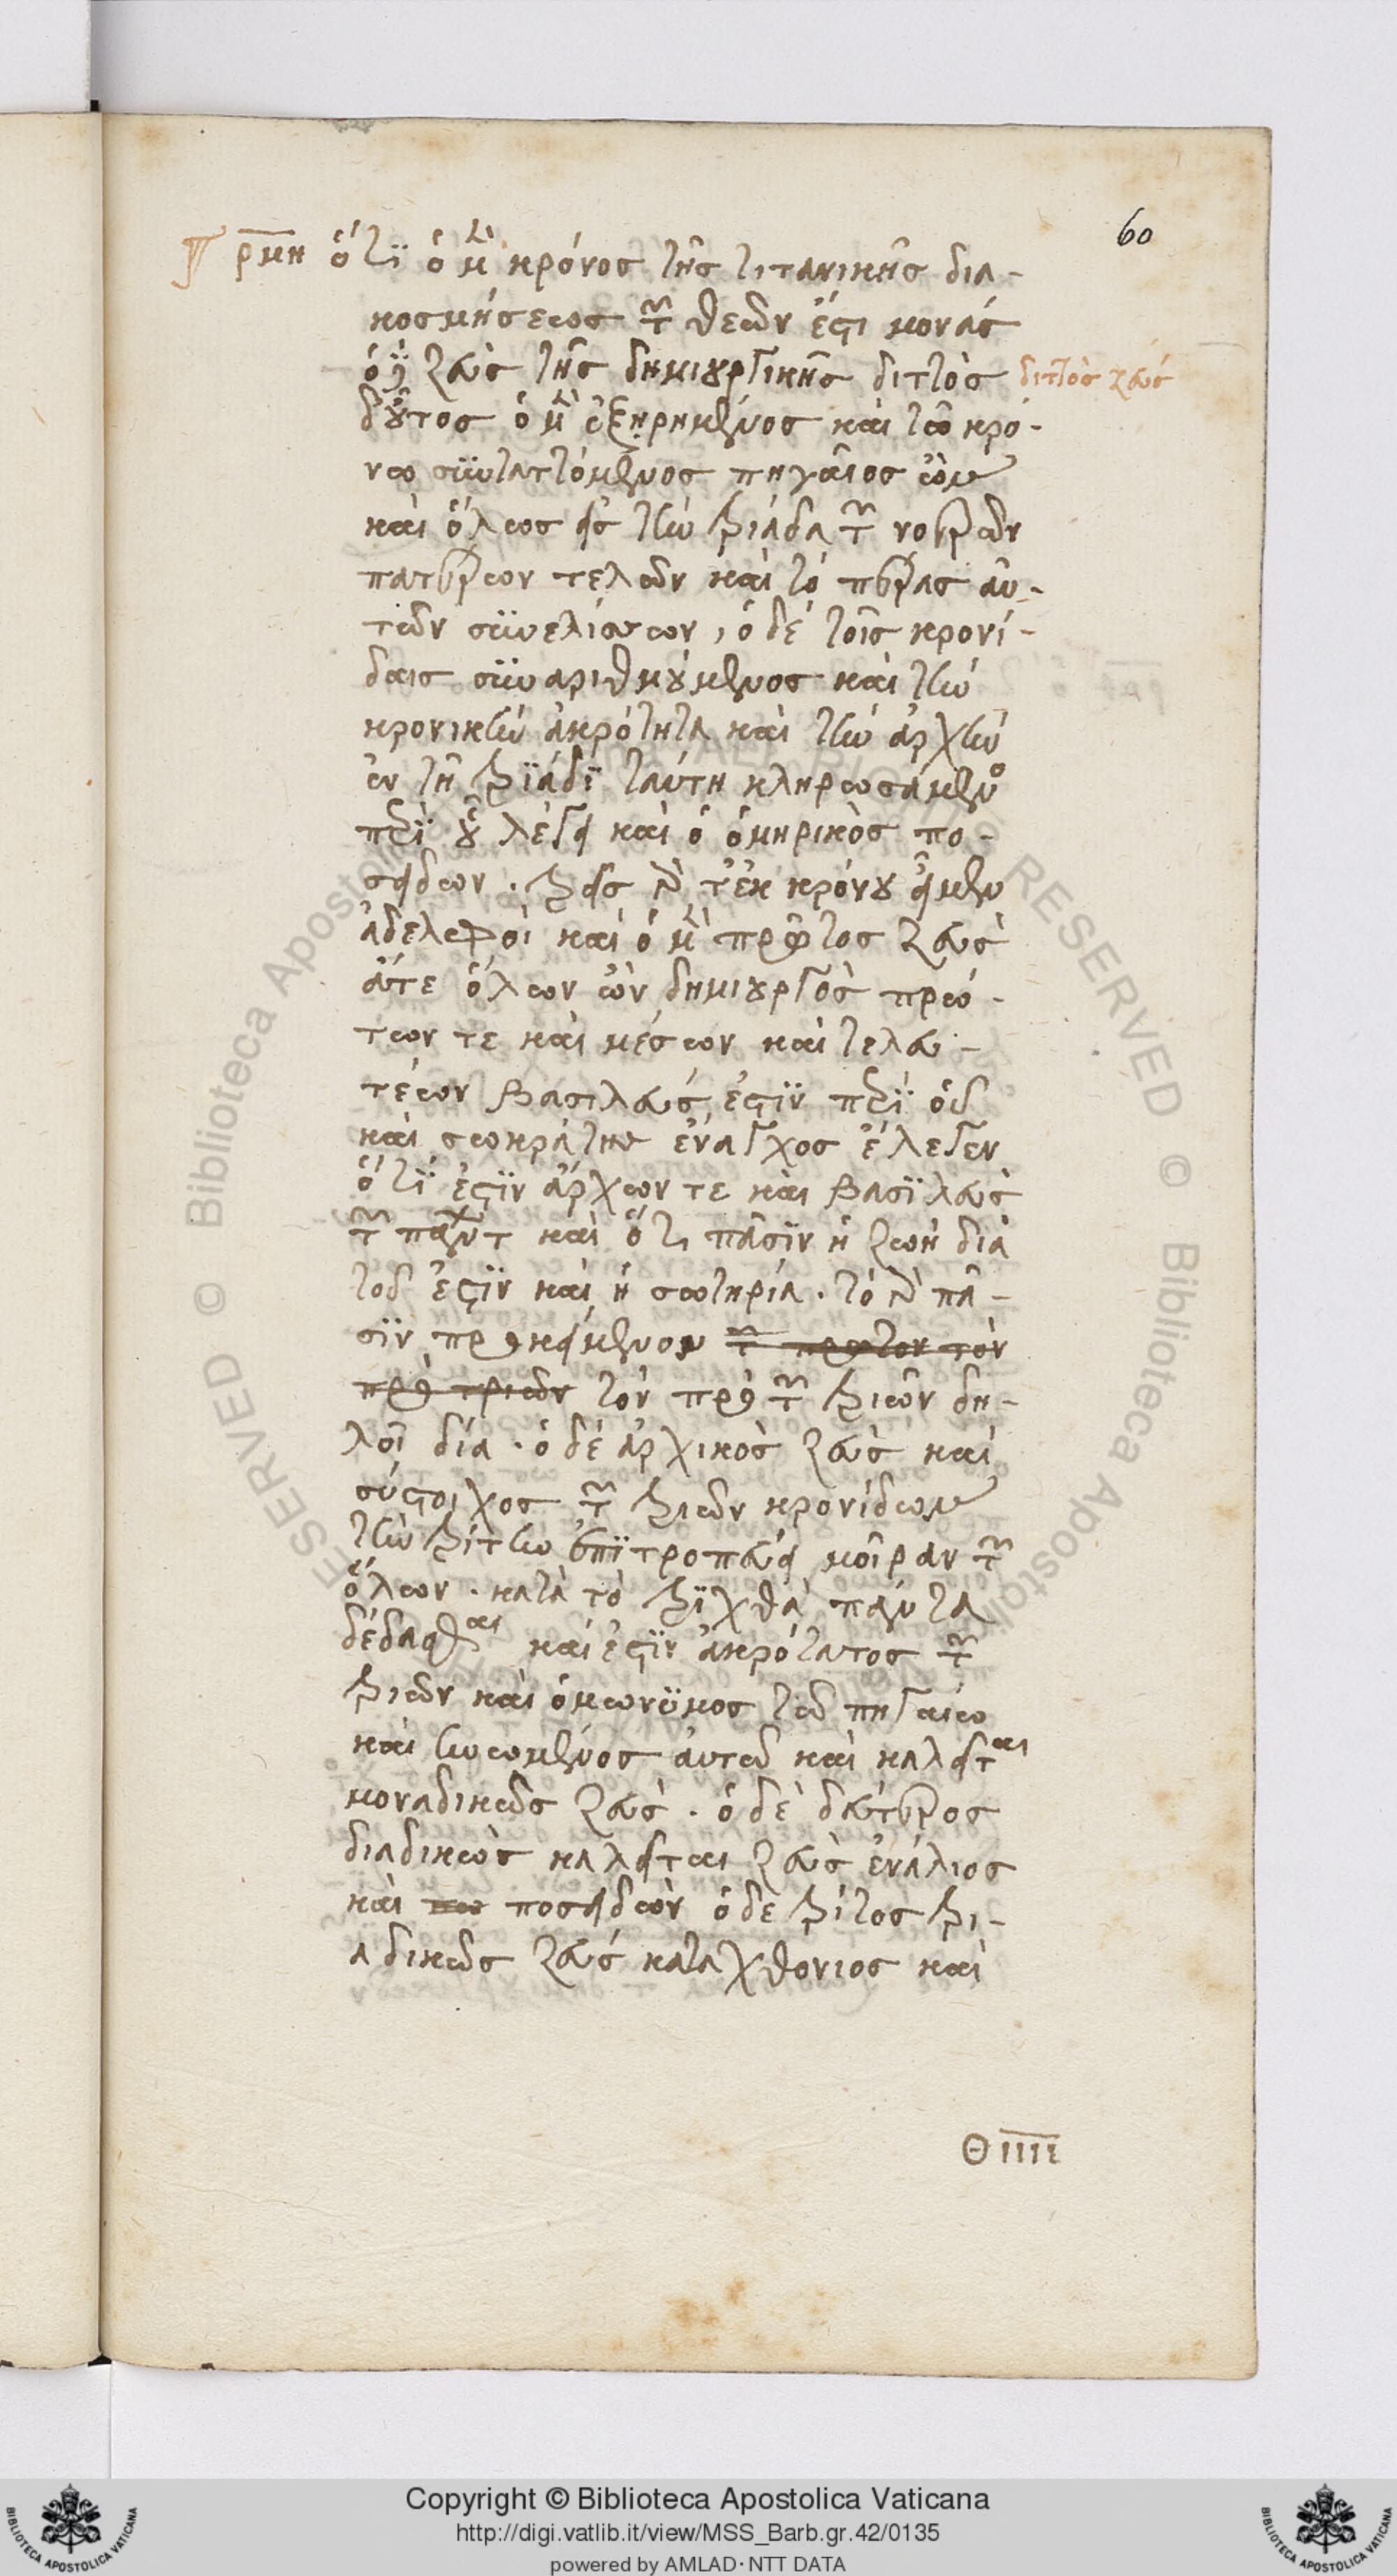 60
ρμη ὅτϊ ὁ μὲν κρόνος τῆς τιτανικῆς δια-
κοσμήσεως τῶν θεῶν ἐστι μονάς
ὁ δὲ ζεὺς τῆς δημιουργικῆς διττὸς διττὸς ζεύς
δ οὗτος ὁ μὲν ἐξῃρημένος καὶ τῶ κρό-
νω συϋταττόμενος πηγαῖος ὢν
καὶ ὅλως εἰς τὴν τριάδα τῶν νοερῶν
πατέρων τελῶν καὶ τὸ πέρας αὐ-
τῶν συνελίσσων, ὁ δὲ τοῖς κρονί-
δαις συναριθμούμενος καὶ τὴν
κρονικὴν ἀκρότητα καὶ τὴν ἀρχὴν
ἐν τῆ τριάδϊ ταύτη κληρωσάμενος
περὶ οὗ λέγει καὶ ὁ ὁμηρικὸς πο-
σειδων . τρεῖς γὰρ τ ἐκ κρόνου εἰμὲν
ἀδελφεοὶ καὶ ὁ μὲν πρῶτος ζεὺς
ἅτε ὅλων ὢν δημιουργὸς πρώ-
των τε καὶ μέσων καὶ τελευ-
τέων βασιλεύς ἐστϊν περὶ οὗ
καὶ σωκράτης ἔναγχος ἔλεγεν
ὅτϊ ἐστϊν ἄρχων τε καὶ βασϊλεὺς
τῶν πάντων καὶ ὅτι πᾶσϊν ἡ ζωὴ διὰ
τοῦ ἐστϊν καὶ ἡ σωτηρία . τὸ γὰρ πᾶ-
σϊν προκείμενον τῶν πρῶτον τὸν
πρὸ τριῶν τὸν πρὸ τῶν τριῶν δη-
λοῖ δία . ὁ δὲ ἀρχικὸς ζεὺς καὶ
σύστοιχος τῶν τριῶν κρονίδων
τὴν τρίτην ἐπϊτροπεύει μοῖραν τῶν
ὅλων . κατὰ τὸ τρϊχθὰ πάντα
δέδασται καί ἐστϊν ἀκρότατος τῶν
τριῶν καὶ ὁμωνϋμος τῶ πηγαίω
καὶ ἡνωμένος αὐτῶ καὶ καλεῖται
μοναδικῶς ζεύς . ὁ δὲ δεύτερος
διαδικῶς καλεῖται ζεὺς ἐνάλιος
καὶ πω ποσειδῶν ὁ δε τρίτος τρι-
αδικῶς ζεύς καταχθόνιος καὶ
Θ ιιιι
ALL RIGHTS RESERVED © Biblioteca Apostolica Vaticana
Copyright © Biblioteca Apostolica Vaticana
http://digi.vatlib.it/view/MSS_Barb.gr.42/0135
powered by AMLAD·NTT DATA
BIBLIOTECA APOSTOLICA VATICANA
BIBLIOTECA APOSTOLICA VATICANA